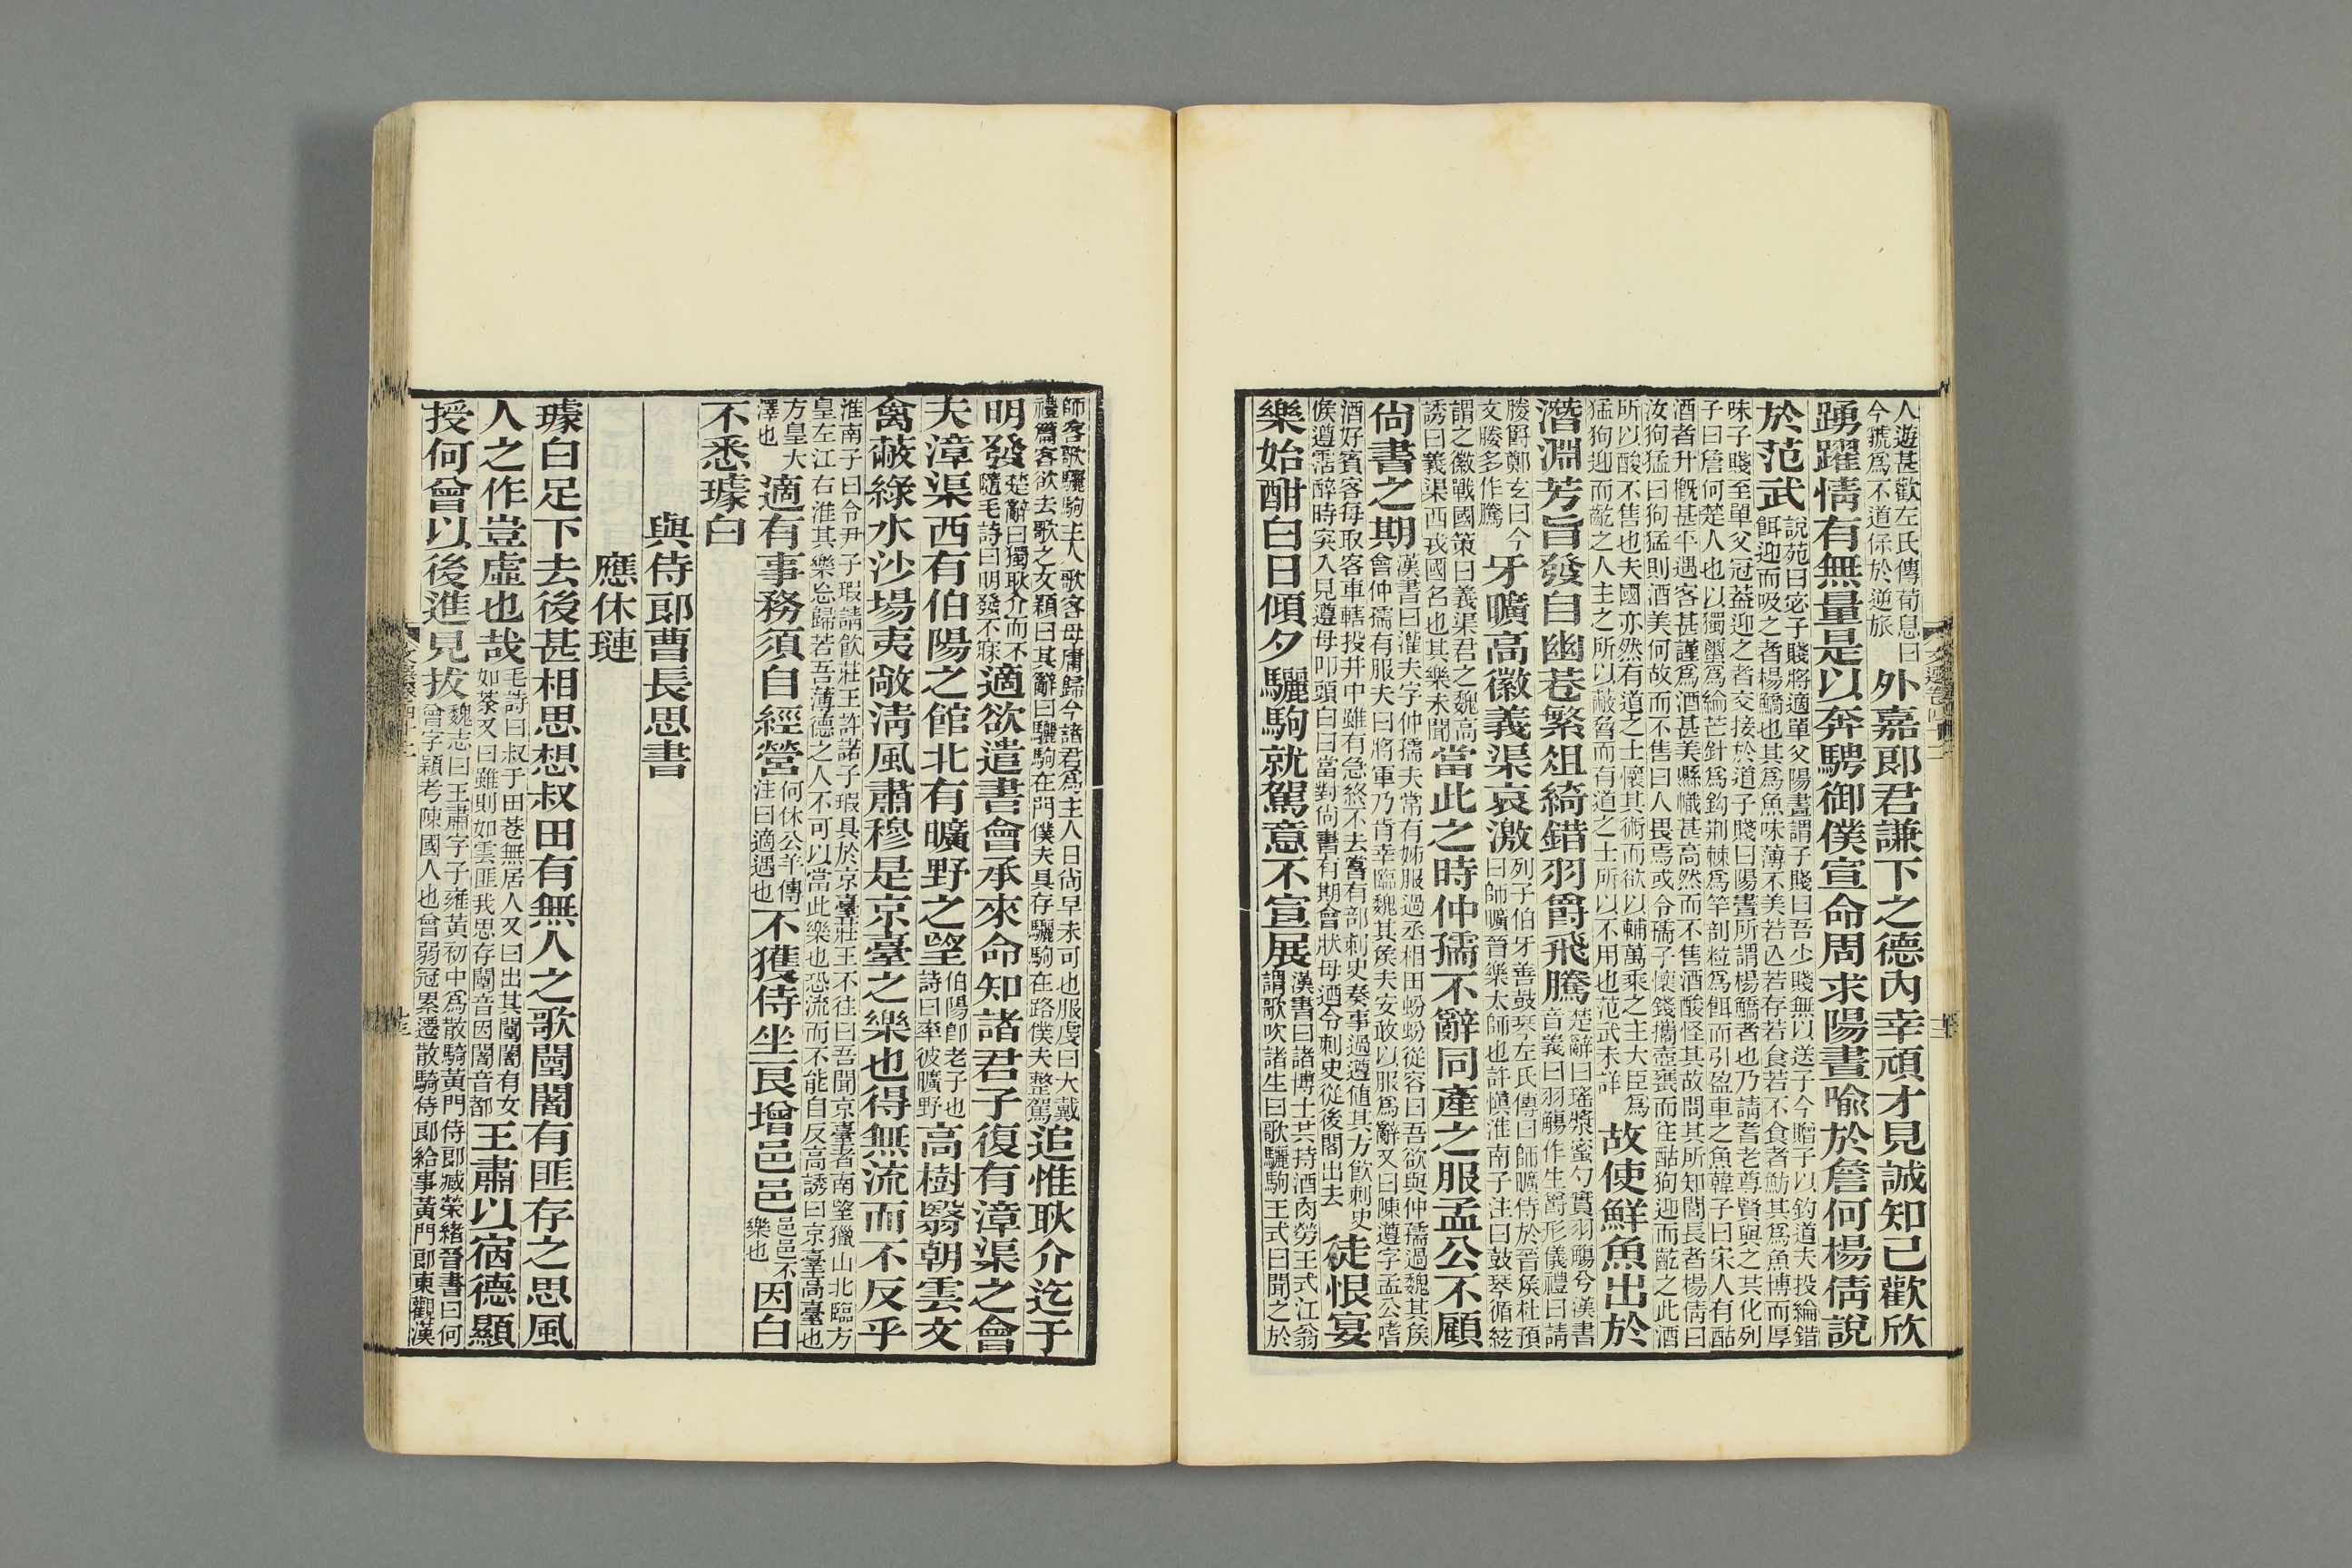 人遊甚歡左氏傳荀息曰
今虢爲不道保於逆旅
外嘉郎君謙下之德內幸頑才見誠知己歡欣
踴躍情有無量是以奔騁御僕宣命周求陽晝喻於詹何楊倩說
於范武
說苑曰宓子賤將適單父陽晝謂子賤曰吾少賤無以送子今贈子以釣道夫投綸錯
餌迎而吸之者楊鱎也其爲魚味薄不美若亾若存若食若不食者魴其爲魚博而厚
味子賤至單父冠葢迎之者交接於道子賤曰陽晝所謂楊鱎者也乃請耆老尊賢與之共化列
子曰詹何楚人也以獨蠒爲綸芒針爲鈎荆棘爲竿剖粒爲餌而引盈車之魚韓子曰宋人有酤
酒者升槪甚平遇客甚謹爲酒甚美縣幟甚高然而不售酒酸怪其故問其所知閭長者楊倩曰
汝狗猛曰狗猛則酒美何故而不售曰人畏焉或令孺子懷錢攜壺罋而往酤狗迎而齕之此酒
所以酸不售也夫國亦然有道之士懷其術而欲以輔萬乘之主大臣爲
猛狗迎而齕之人主之所以蔽脅而有道之士所以不用也范武未詳
故使鮮魚出於
潛淵芳旨發自幽巷繁俎綺錯羽爵飛騰
楚辭曰瑤漿蜜勺實羽觴兮漢書
音義曰羽觴作生爵形儀禮曰請
媵爵鄭玄曰今
文媵多作騰
牙曠高徽義渠哀激
列子伯牙善鼓琴左氏傳曰師曠侍於晉侯杜預
曰師曠晉樂太師也許愼淮南子注曰鼓琴循絃
謂之徽戰國策曰義渠君之魏高
誘曰義渠西戎國名也其樂未聞
當此之時仲孺不辭同產之服孟公不顧
尙書之期
漢書曰灌夫字仲孺夫常有姊服過丞相田蚡蚡從容曰吾欲與仲孺過魏其侯
會仲孺有服夫曰將軍乃肯幸臨魏其侯夫安敢以服爲辭又曰陳遵字孟公嗜
酒好賓客每取客車轄投井中雖有急終不去嘗有部刺史奏事過遵值其方飮刺史
候遵霑醉時突入見遵母叩頭自白當對尙書有期會狀母廼令刺史從後閣出去
徒恨宴
樂始酣白日傾夕驪駒就駕意不宣展
漢書曰諸博士共持酒肉勞王式江翁
謂歌吹諸生曰歌驪駒王式曰聞之於
師客歌驪駒主人歌客毋庸歸今諸君爲主人日尙早未可也服虔曰大戴
禮篇客欲去歌之文穎曰其辭曰驪駒在門僕夫具存驪駒在路僕夫整駕
追惟耿介迄于
明發
楚辭曰獨耿介而不
隨毛詩曰明發不寐
適欲遣書會承來命知諸君子復有漳渠之會
夫漳渠西有伯陽之館北有曠野之望
伯陽卽老子也
詩曰率彼曠野
高樹翳朝雲文
禽蔽綠水沙場夷敞淸風肅穆是京臺之樂也得無流而不反乎
淮南子曰令尹子瑕請飮莊王許諾子瑕具於京臺莊王不往曰吾聞京臺者南望獵山北臨方
皇左江右淮其樂忘歸若吾薄德之人不可以當此樂也恐流而不能自反高誘曰京臺高臺也
方皇大
澤也
適有事務須自經營
何休公羊傳
注曰適遇也
不獲侍坐良增邑邑
邑邑不
樂也
因白
不悉璩白
與侍郎曹長思書
應休璉
璩白足下去後甚相思想叔田有無人之歌闉闍有匪存之思風
人之作豈虛也哉
毛詩曰叔于田巷無居人又曰出其闉闍有女
如荼又曰雖則如雲匪我思存闉音因闍音都
王肅以宿德顯
授何曾以後進見拔
魏志曰王肅字子雍黃初中爲散騎黃門侍郎臧榮緒晉書曰何
曾字穎考陳國人也曾弱冠累遷散騎侍郎給事黃門郎東觀漢